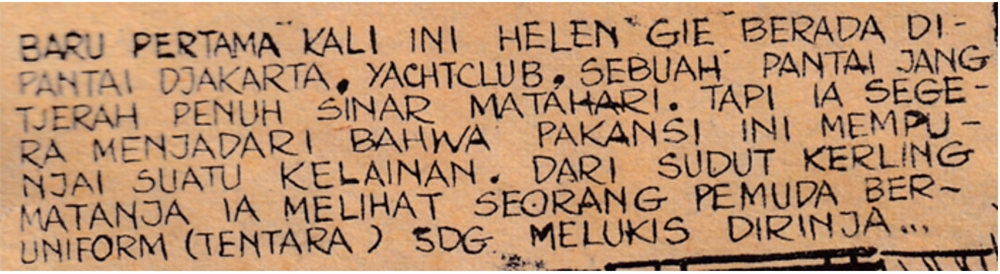 BARU PERTAMA KALI INI HELEN GIE BERADA DI-
PANTAI DJAKARTA. YACHTCLUB. SEBUAH PANTAI JANG
TJERAH PENUH SINAR MATAHARI. TAPI IA SEGE-
RA MENJADARI BAHWA PAKANSI INI MEMPU-
NJAI SUATU KELAINAN. DARI SUDUT KERLING
MATANJA IA MELIHAT SEORANG PEMUDA BER-
UNIFORM (TENTARA) SDG MELUKIS DIRINJA...